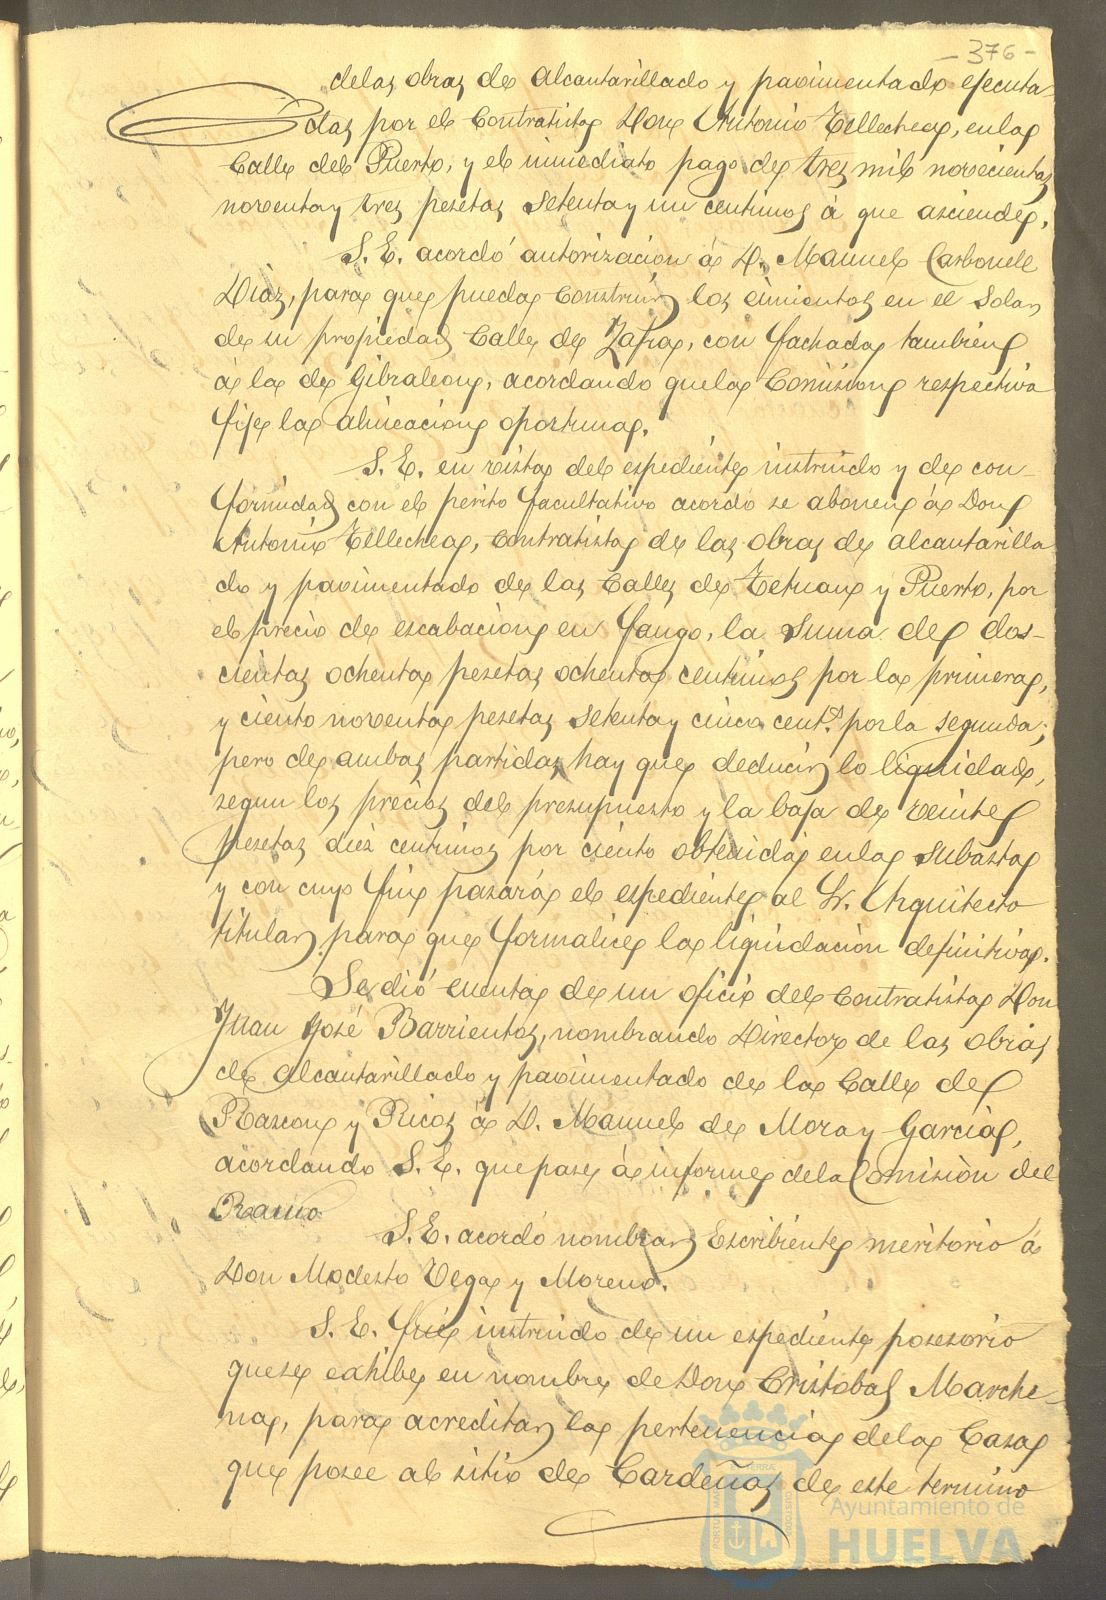 - 376 -
delas obras de alcantarillado y pavimentado ejecuta-
das por el Contratista Don Antonio Tellechea, enla
Calle del Puerto, y el inmediato pago de tres mil novecientas
noventa y tres pesetas setenta y un centimos á que asciende.
S. E. acordó autorizacion á D. Manuel Carbonell
Diaz, para que pueda construir los cimientos en el Solar
de su propiedad Calle de Zafra, con fachada tambien
á la de Gibraleon, acordando quela Comision respectiva
fije la alineacion oportuna.
S. E. en vista del espediente instruido y de con-
formidad con el perito facultativo acordó se abonen á Don
Antonio Tellechea, Contratista de las obras de alcantarilla-
do y pavimentado de las Calles de Tetuan y Puerto, por
el precio de escabacion en fango, la suma de dos-
cientas ochenta pesetas ochenta centimos por la primera,
y ciento noventa pesetas setenta y cinco cents. por la segunda;
pero de ambas partidas hay que deducir lo liquidado,
segun los precios del presupuesto y la baja de veinte
pesetas diez centimos por ciento obtenida enla subasta
y con cuyo fin pasará el espediente al Sr. Arquitecto
titular para que formalice la liquidacion definitiva.
Se dió cuenta de un oficio del Contratista Don
Juan José Barrientos, nombrando Director de las obras
de alcantarillado y pavimentado de la Calle de
Rascon y Ricos á D. Manuel de Mora y Garcia,
acordando S. E. que pase á informe dela Comisiòn del
Ramo.
S. E. acordó nombrar Escribiente meritorio á
Don Modesto Vega y Moreno.
S. E. fué instruido de un espediente posesorio
quese exhibe en nombre de Don Cristobal Marche-
na, para acreditar la pertenencia dela Casa
que posee al sitio de Cardeñas de este termino
Ayuntamiento de
HUELVA